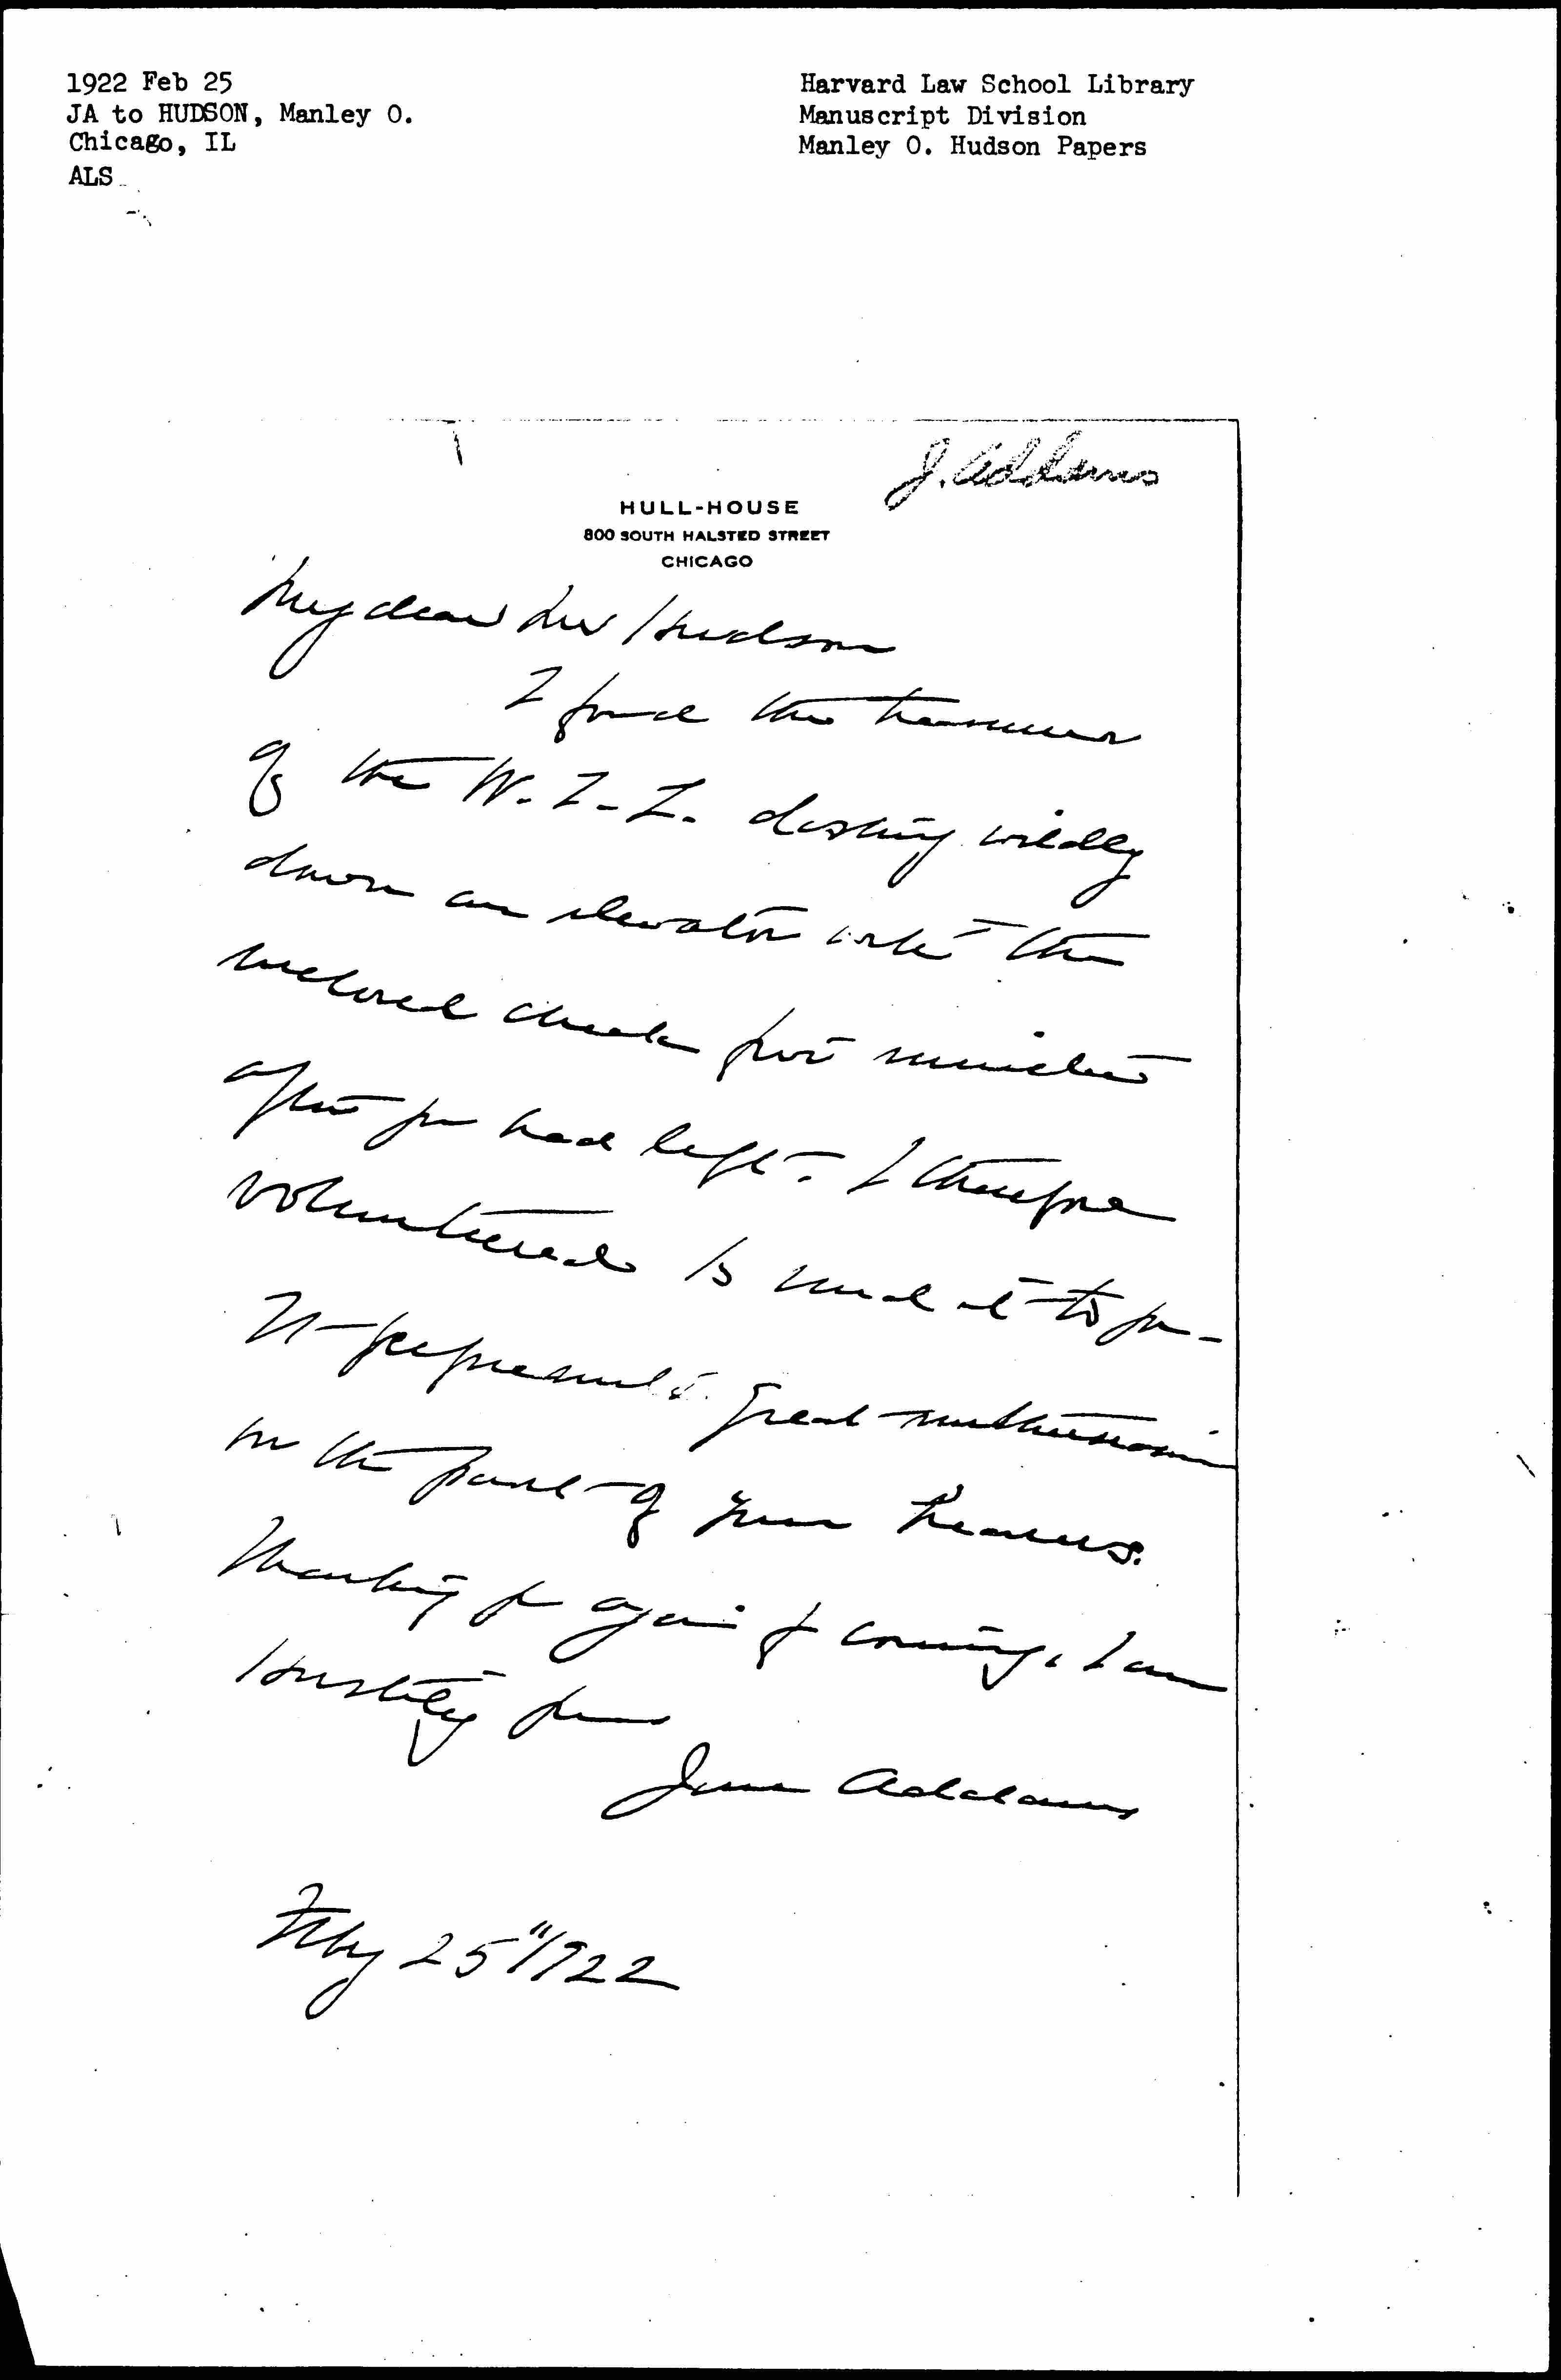 1922 Feb 25
JA to HUDSON, Manley O.
Chicago, IL
ALS
Harvard Law School Library
Manuscript Division
Manley O. Hudson Papers
J. Addams
HULL-HOUSE
800 SOUTH HALSTED STREET
CHICAGO
My dear Mr Hudson
I found the treasurer
of the W. I. L. dashing wildly
down an elevator with the
enclosed check five minutes
after you had left. I therefore
volunteered to send it to you -
It represents great enthusiasm
on the part of your hearers.
Thanking you again for coming, I am
Hastily yours
Jane Addams
Feby 25" 1922